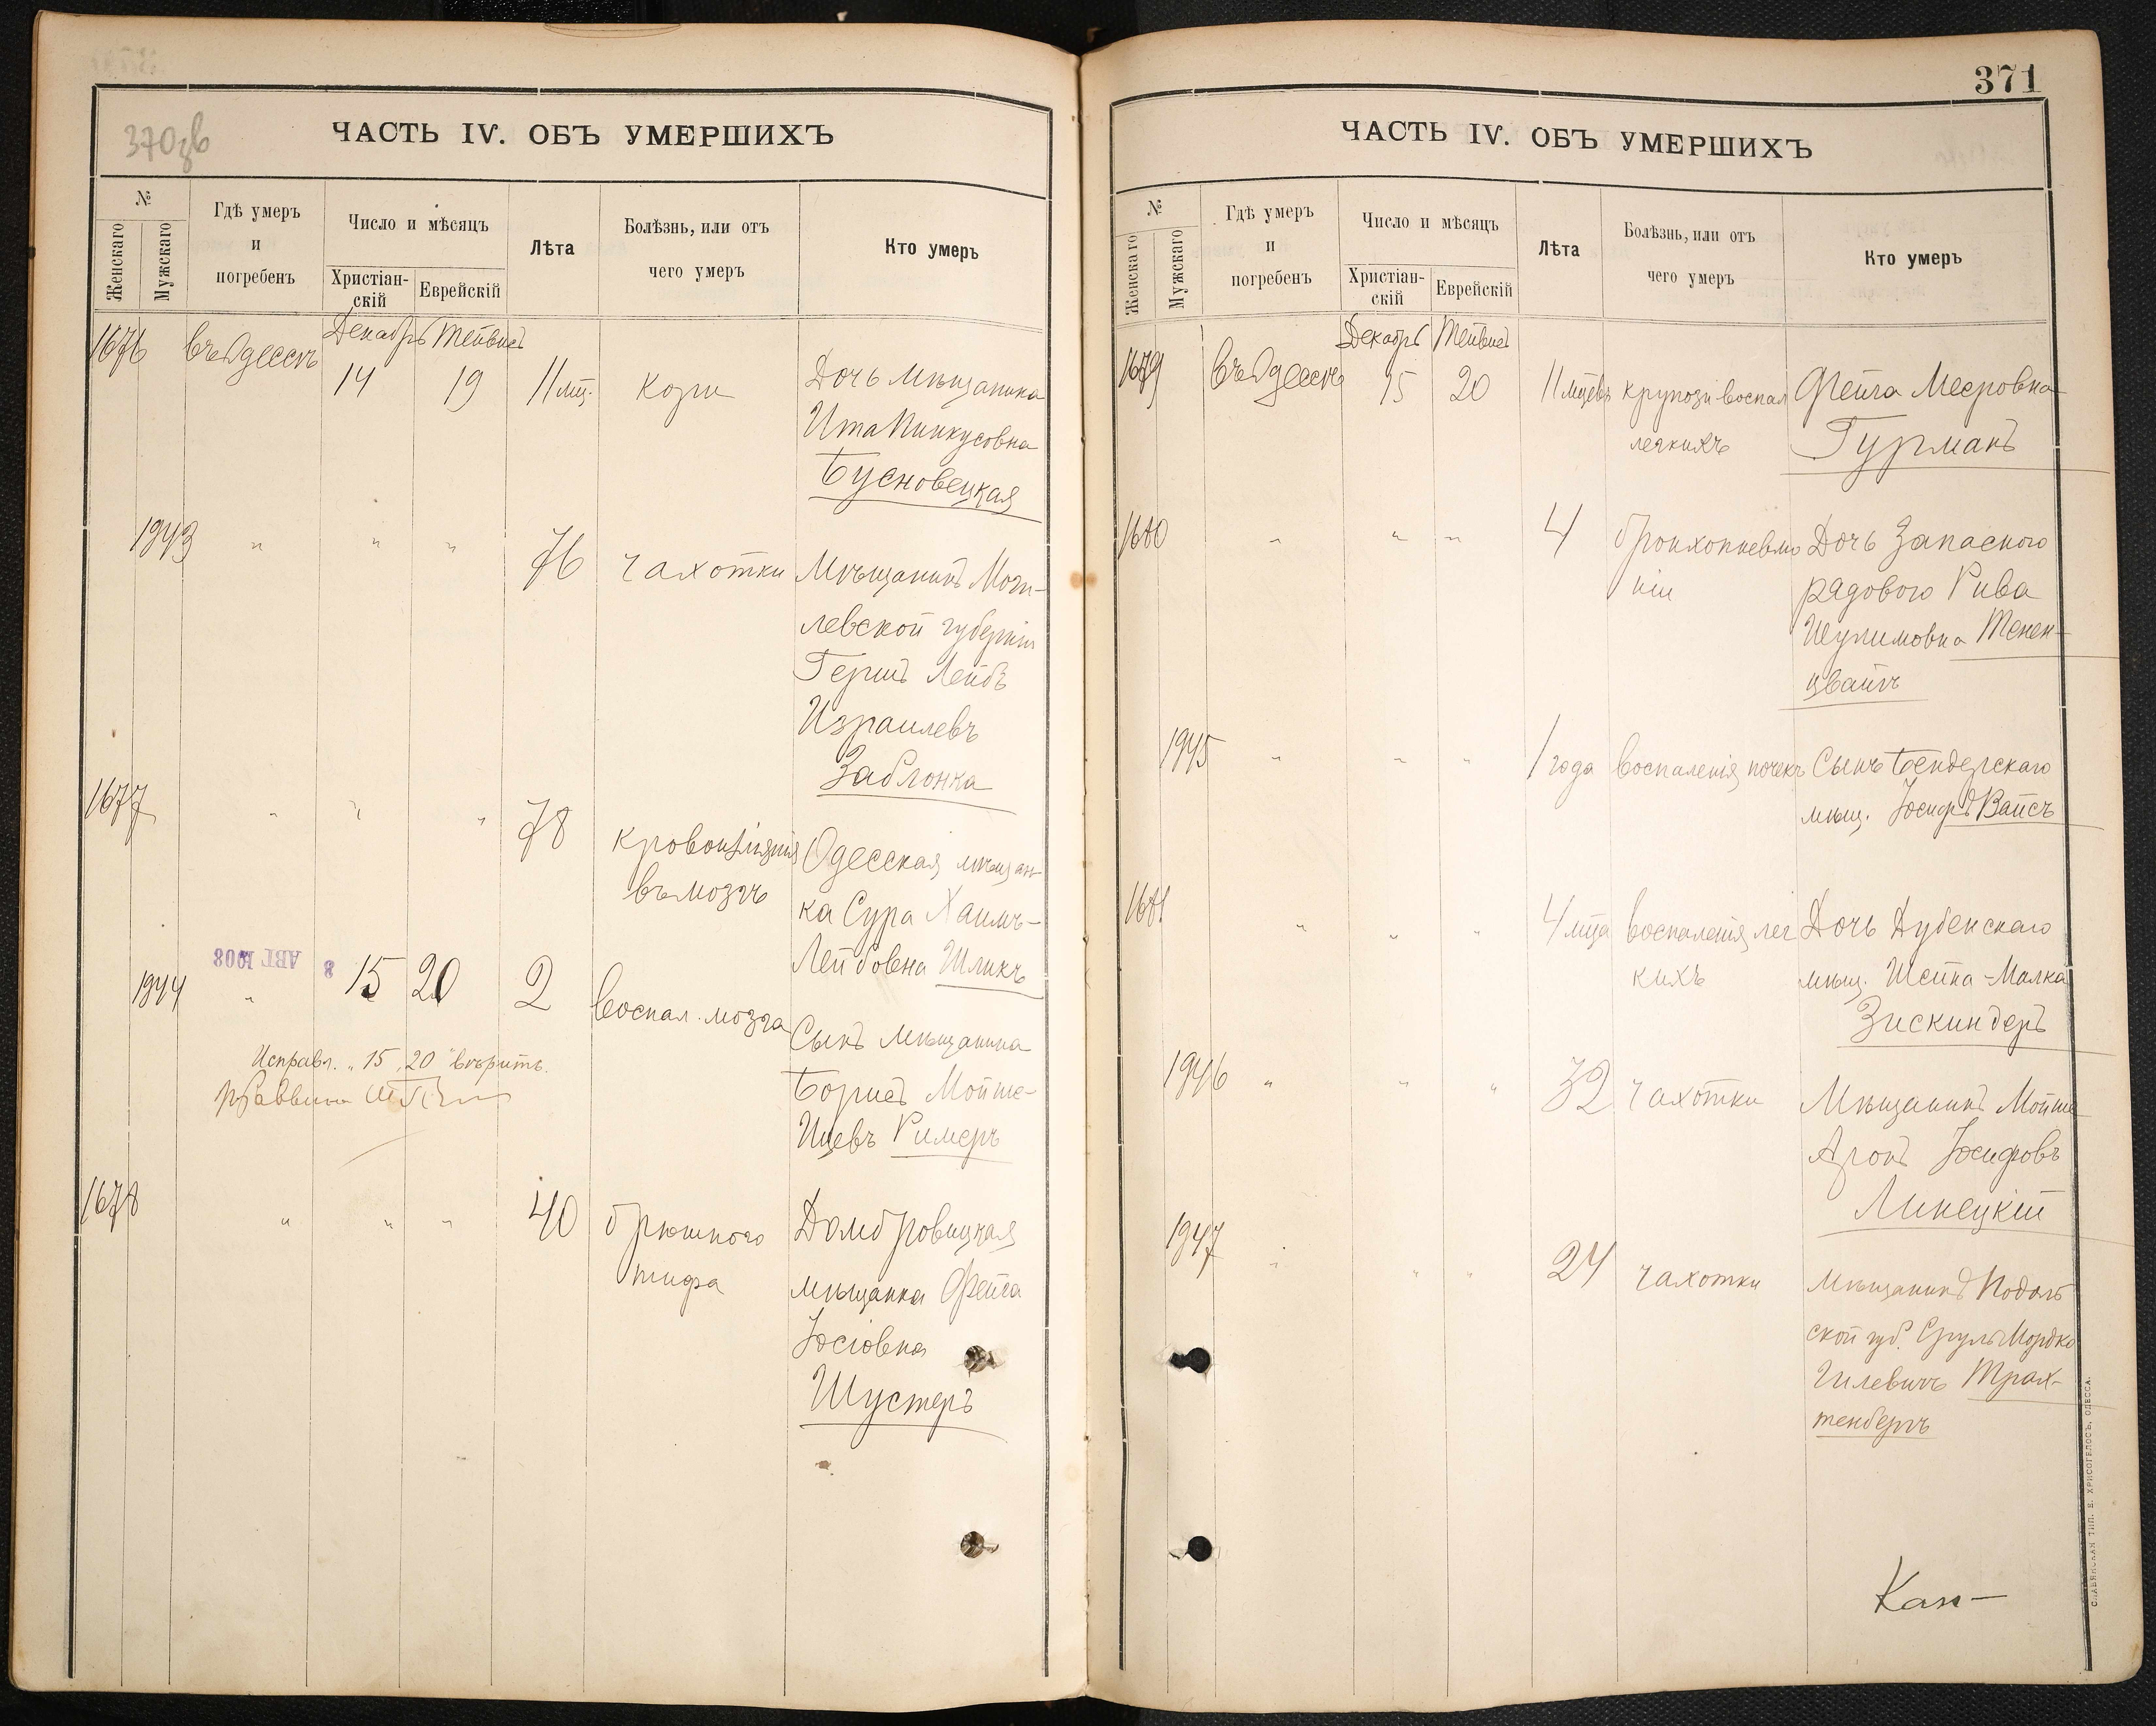 370 зв
ЧАСТЬ IV. ОБЪ УМЕРШИХЪ
№
Женскаго
Мужскаго
Гдѣ умеръ
и
погребенъ
Число и мѣсяцъ
Христіан-
скій
Еврейскій
Лѣта
Болѣзнь, или отъ
чего умеръ
Кто умеръ
Декабрь Тейвисъ
1676 въ Одессѣ 14 19 11 мц. кори Дочь мѣщанина
Ита Пинкусовна
Бусновецкая
1943 " " " 76 чахотки Мѣщанинъ Моги-
левской губерніи
Гершъ Лейбъ
Израилевъ
Заблонка
1677 " " " 78 кровоизліянія Одесская мѣщан-
въ мозгъ ка Сура Хаимъ-
Лейбовна Шликъ
8 АВГ 1908
1944 " 15 20 2 воспал. мозга Сынъ мѣщанина
Борисъ Мойше-
Ицевъ Римеръ
Исправл. „15„ „20" вѣрить.
Раввинъ
1678 " " " 40 брюшного Домбровицкая
тифа мѣщанка Фейга
Іосіовна
Шустеръ
371
ЧАСТЬ IV. ОБЪ УМЕРШИХЪ
№
Женскаго
Мужскаго
Гдѣ умеръ
и
погребенъ
Число и мѣсяцъ
Христіан-
скій
Еврейскій
Лѣта
Болѣзнь, или отъ
чего умеръ
Кто умеръ
Декабрь Тейвисъ
1679 въ Одессѣ 15 20 11 мцевъ крупозн воспал Фейга Меєровна
легкихъ Гурманъ
1680 " " " 4 бронхопневмо Дочь Запасного
ніи рядового Рива
Шулимовна Тенен-
цвайгъ
1945 " " " 1 года воспаленія почекъ Сынъ Бендерскаго
мѣщ. Іосифъ Вайсъ
1681 " " " 4 мца воспаленія лег Дочь Дубенскаго
кихъ мѣщ. Шейна-Малка
Зискиндеръ
1946 " " " 32 чахотки Мѣщанинъ Мойше
Аронъ Іосифовъ
Линецкій
1947 " " " 24 чахотки мѣщанинъ Подоль
ской губ. Сруль Мордко
Гилевичъ Трах-
тенбергъ
Кан-
СЛАВЯНСКАЯ ТИП. Е. ХРИСОГЕЛОСЪ, ОДЕССА.